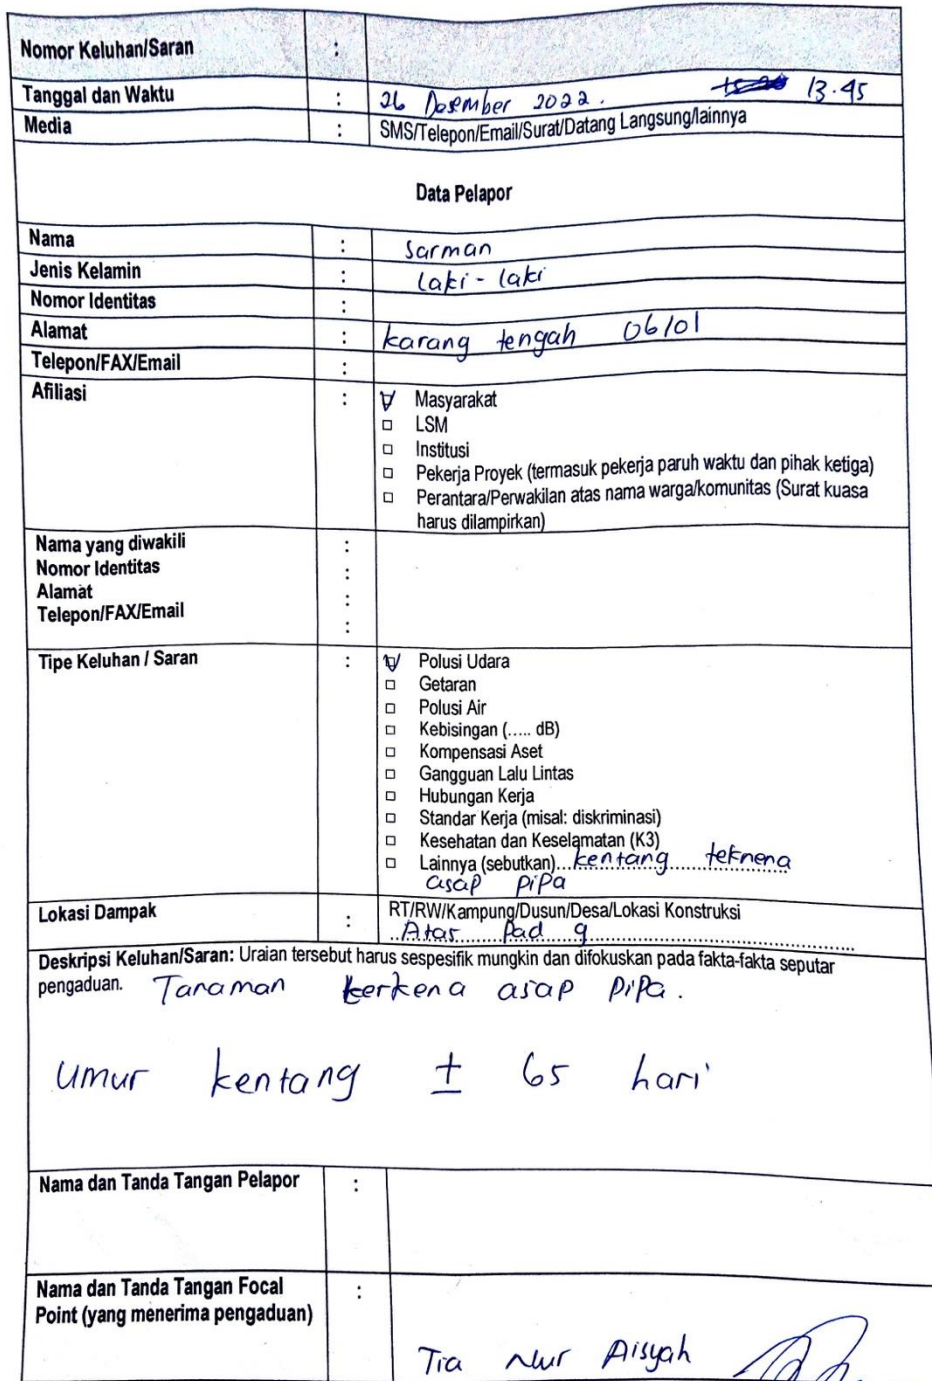 Nomor Keluhan/Saran :
Tanggal dan Waktu : 26 Desember 2022. 13.45
Media : SMS/Telepon/Email/Surat/Datang Langsung/lainnya
Data Pelapor
Nama : Sarman
Jenis Kelamin : Laki-laki
Nomor Identitas :
Alamat : karang tengah 06/01
Telepon/FAX/Email :
Afiliasi : Masyarakat
LSM
Institusi
Pekerja Proyek (termasuk pekerja paruh waktu dan pihak ketiga)
Perantara/Perwakilan atas nama warga/komunitas (Surat kuasa
harus dilampirkan)
Nama yang diwakili :
Nomor Identitas :
Alamat :
Telepon/FAX/Email :
Tipe Keluhan / Saran : Polusi Udara
Getaran
Polusi Air
Kebisingan (..... dB)
Kompensasi Aset
Gangguan Lalu Lintas
Hubungan Kerja
Standar Kerja (misal: diskriminasi)
Kesehatan dan Keselamatan (K3)
Lainnya (sebutkan)...kentang teknena
asap pipa
Lokasi Dampak : RT/RW/Kampung/Dusun/Desa/Lokasi Konstruksi
Atas Pad 9
Deskripsi Keluhan/Saran: Uraian tersebut harus sespesifik mungkin dan difokuskan pada fakta-fakta seputar
pengaduan. Tanaman terkena asap pipa.
Umur kentang ± 65 hari
Nama dan Tanda Tangan Pelapor :
Nama dan Tanda Tangan Focal :
Point (yang menerima pengaduan)
Tia Nur Aisyah